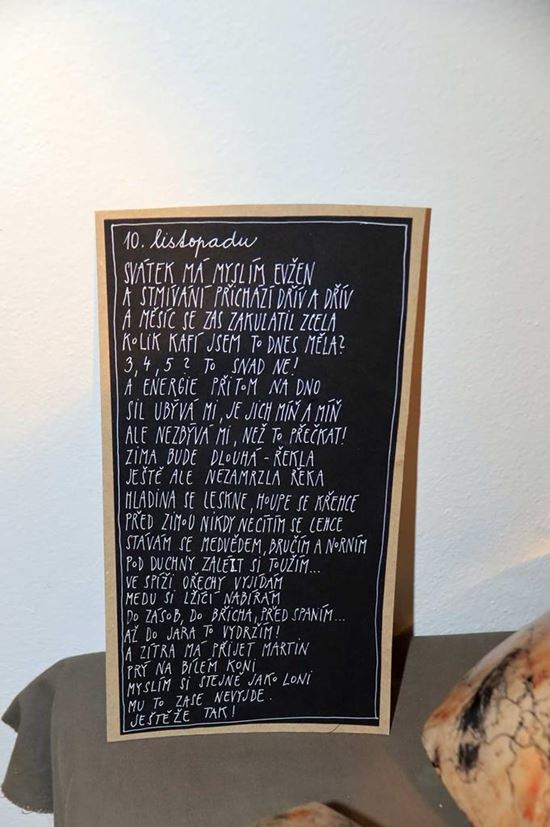 10. listopadu
SVÁTEK MÁ MYSLÍM EVŽEN
A STMÍVÁNÍ PŘICHÁZÍ DŘÍV A DŘÍV
A MĚSÍC SE ZAS ZAKULATIL ZCELA
KOLIK KAFÍ JSEM TO DNES MĚLA?
3, 4, 5? TO SNAD NE!
A ENERGIE PŘITOM NA DNO
SIL UBÝVÁ MI, JE JICH MÍŇ A MÍŇ
ALE NEZBÝVÁ MI, NEŽ TO PŘEČKAT!
ZIMA BUDE DLOUHÁ - ŘEKLA
JEŠTĚ ALE NEZAMRZLA ŘEKA
HLADINA SE LESKNE, HOUPE SE KŘEHCE
PŘED ZIMOU NIKDY NECÍTÍM SE LEHCE
STÁVÁM SE MEDVĚDEM, BRUČÍM A NORNÍM
POD DUCHNY ZALÉZT SI TOUŽÍM...
VE SPÍŽI OŘECHY VYJÍDÁM
MEDU SI LŽÍCÍ NABÍRÁM
DO ZÁSOB, DO BŘICHA, PŘED SPANÍM...
AŽ DO JARA TO VYDRŽÍM!
A ZÍTRA MÁ PŘIJET MARTIN
PRÝ NA BÍLÉM KONI
MYSLÍM SI STEJNĚ JAKO LONI
MU TO ZASE NEVYJDE.
JEŠTĚŽE TAK!